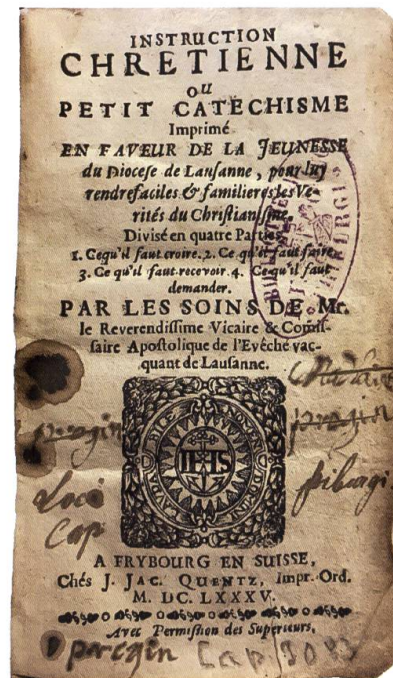 INSTRUCTION
CHRETIENNE
OU
PETIT CATECHISME
Imprimé
EN FAVEUR DE LA JEUNESSE
du Diocese de Lausanne, pour luy
rendre faciles & familieres les Ve-
rités du Christianisme.
Divisé en quatre Parties
1. Cequ'il faut croire. 2. Ce qu'il faut faire
3. Ce qu'il faut recevoir 4. Ce qu'il faut
demander.
PAR LES SOINS DE Mr.
le Reverendissime Vicaire & Comis-
saire Apostolique de l'Evêché vac-
quant de Lausanne.
IHS
Loco
Cap
A FRYBOURG EN SUISSE,
Chés J. JAC. QUENTZ, Impr. Ord.
M. DC. LXXXV.
Avec Permission des Superieurs,
Cap